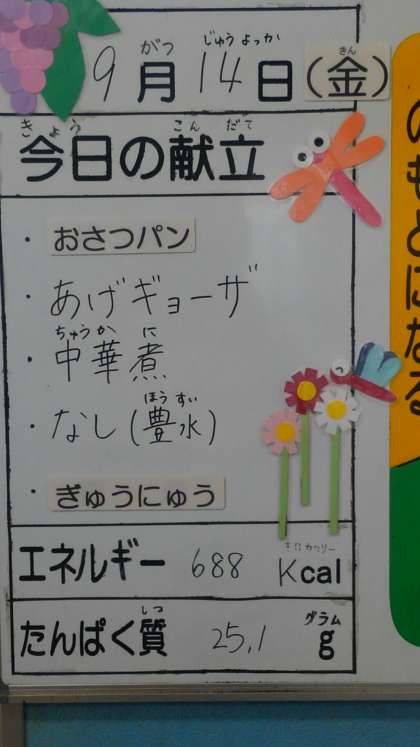 がつ じゅうよっか きん
9月14日(金)
きょう こんだて
今日の献立
・おさつパン
・あげギョーザ
ちゅうか に
・中華煮
ほうすい
・なし(豊水)
・ぎゅうにゅう
キロカロリー
エネルギー 688 Kcal
しつ グラム
たんぱく質 25.1 g
のもとになる